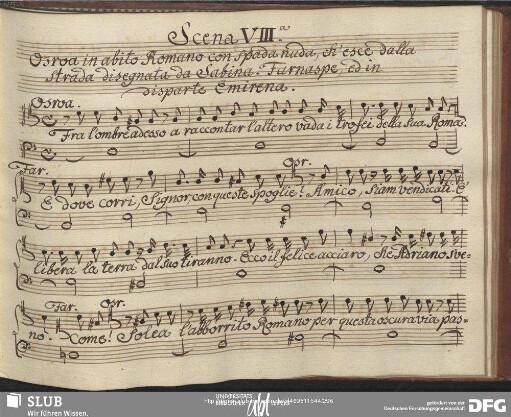 Scena VIII.a
Osroa in abito Romano con spada nuda, ch'esce dalla
strada disegnata da Sabina. Farnaspe, ed in
disparte Emirena.
Osroa.
Fra l'ombre adesso a raccontar l'altero vada i trofei della sua Roma.
Far. Osr.
E dove corri, Signor, con queste spoglie? Amico, siam vendicati. E'
libera la terra dal suo tiranno. Ecco il felice acciaro, che Adriano sve-
Far. Osr.
no. Come! Solea l'abborrito Romano per questa oscura via pas-
SLUB
Wir führen Wissen.
UNIVERSITÄTS
BIBLIOTHEK
gefördert von der
Deutschen Forschungsgemeinschaft
DFG